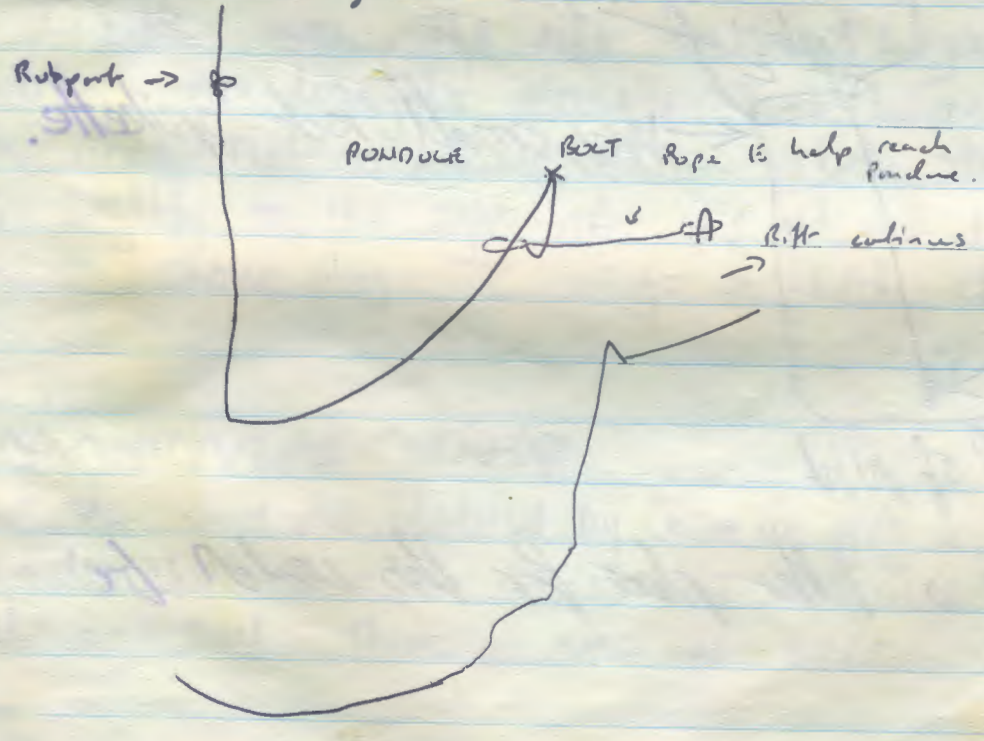 Rubpoint →
PONDULE BOLT Rope to help reach
Pondule.
Rift continues